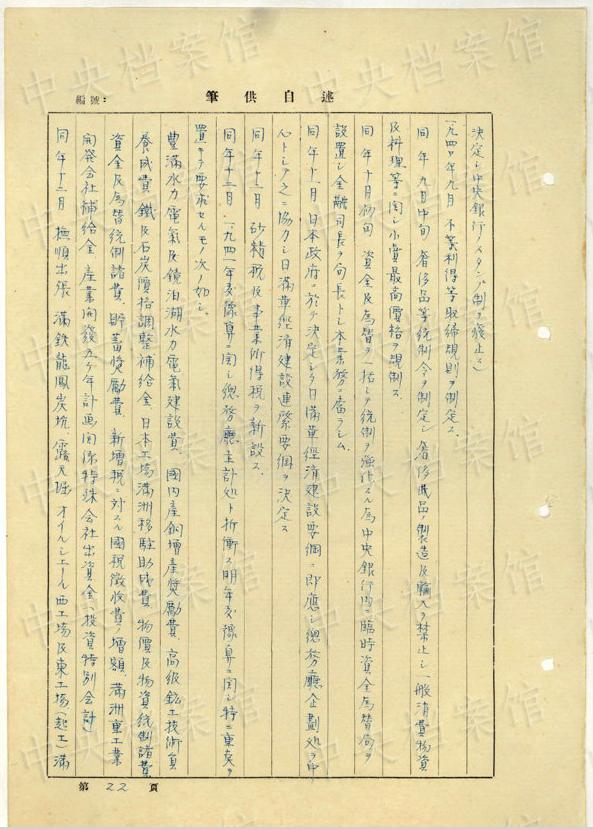 編號：
筆供自述
決定シ中央銀行ノスタンプ制ヲ廃止ス
一九四〇年九月　不當利得等取締規則ヲ制定ス
同年九月中旬　奢侈品等統制令ヲ制定シ奢侈品ノ製造及輸入ヲ禁止シ一般消費物資
及料理等ニ関シ小賣最高價格ヲ規制ス
同年十月初旬　資金及為替ヲ一括シ統制ヲ強化スル為中央銀行内ニ臨時資金為替局ヲ
設置シ金融司長ヲ局長トシ本業務ニ當ラシム
同年十一月　日本政府ニ於テ決定シタ日満華経済建設要綱ニ即應シ総務廳企劃処ヲ中
心トシテ之ニ協力シ日満華経済建設連繋要綱ヲ決定ス
同年十二月　砂糖税及事業所得税ヲ新設ス
同年十二月　一九四一年度豫算ニ関シ総務廳主計処ト折衝ス明年度豫算ニ関シ特ニ重点ヲ
置キテ要求セルモノ次ノ如シ
豊満水力電氣及鏡泊湖水力電氣建設費　國内産銅増産奨勵費　高級鉱工技術員
養成費　鐵及石炭價格調整補給金　日本工場満洲移駐助成費　物價及物資統制諸費
資金及為替統制諸費　貯蓄奨勵費　新増税ニ対スル國税徴收費ノ増額　満洲重工業
開発会社補給金　産業開發五ヶ年計画関係特殊会社出資金（投資特別会計）
同年十二月　撫順出張　満鉄龍鳳炭坑　露天掘　オイルシエール西工場及東工場（起工）満
第22頁
中央档案馆